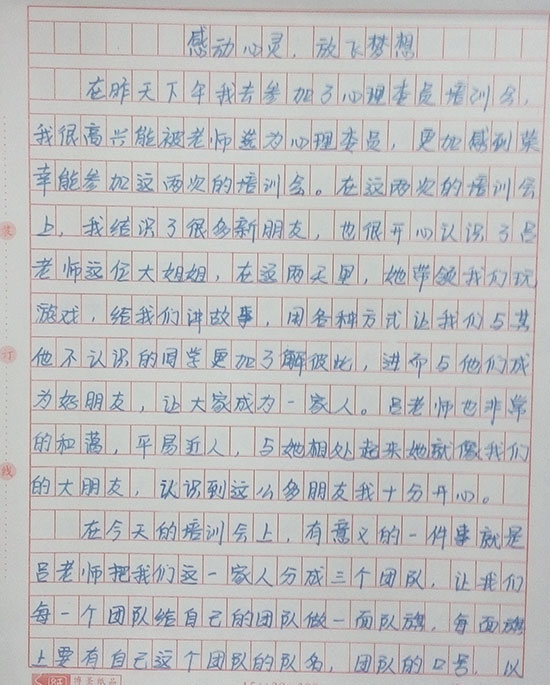 感动心灵，放飞梦想
在昨天下午我去参加了心理委员培训会，
我很高兴能被老师选为心理委员，更加感到荣
幸能参加这两次的培训会。在这两次的培训会
上，我结识了很多新朋友，也很开心认识了吕
老师这位大姐姐，在这两天里，她带领我们玩
游戏，给我们讲故事，用各种方式让我们与其
他不认识的同学更加了解彼此，进而与他们成
为好朋友，让大家成为一家人。吕老师也非常
的和蔼，平易近人，与她相处起来她就像我们
的大朋友，认识到这么多朋友我十分开心。
在今天的培训会上，有意义的一件事就是
吕老师把我们这一家人分成三个团队，让我们
每一个团队给自己的团队做一面队旗，每面旗
上要有自己这个团队的队名，团队的口号，以
装
订
线